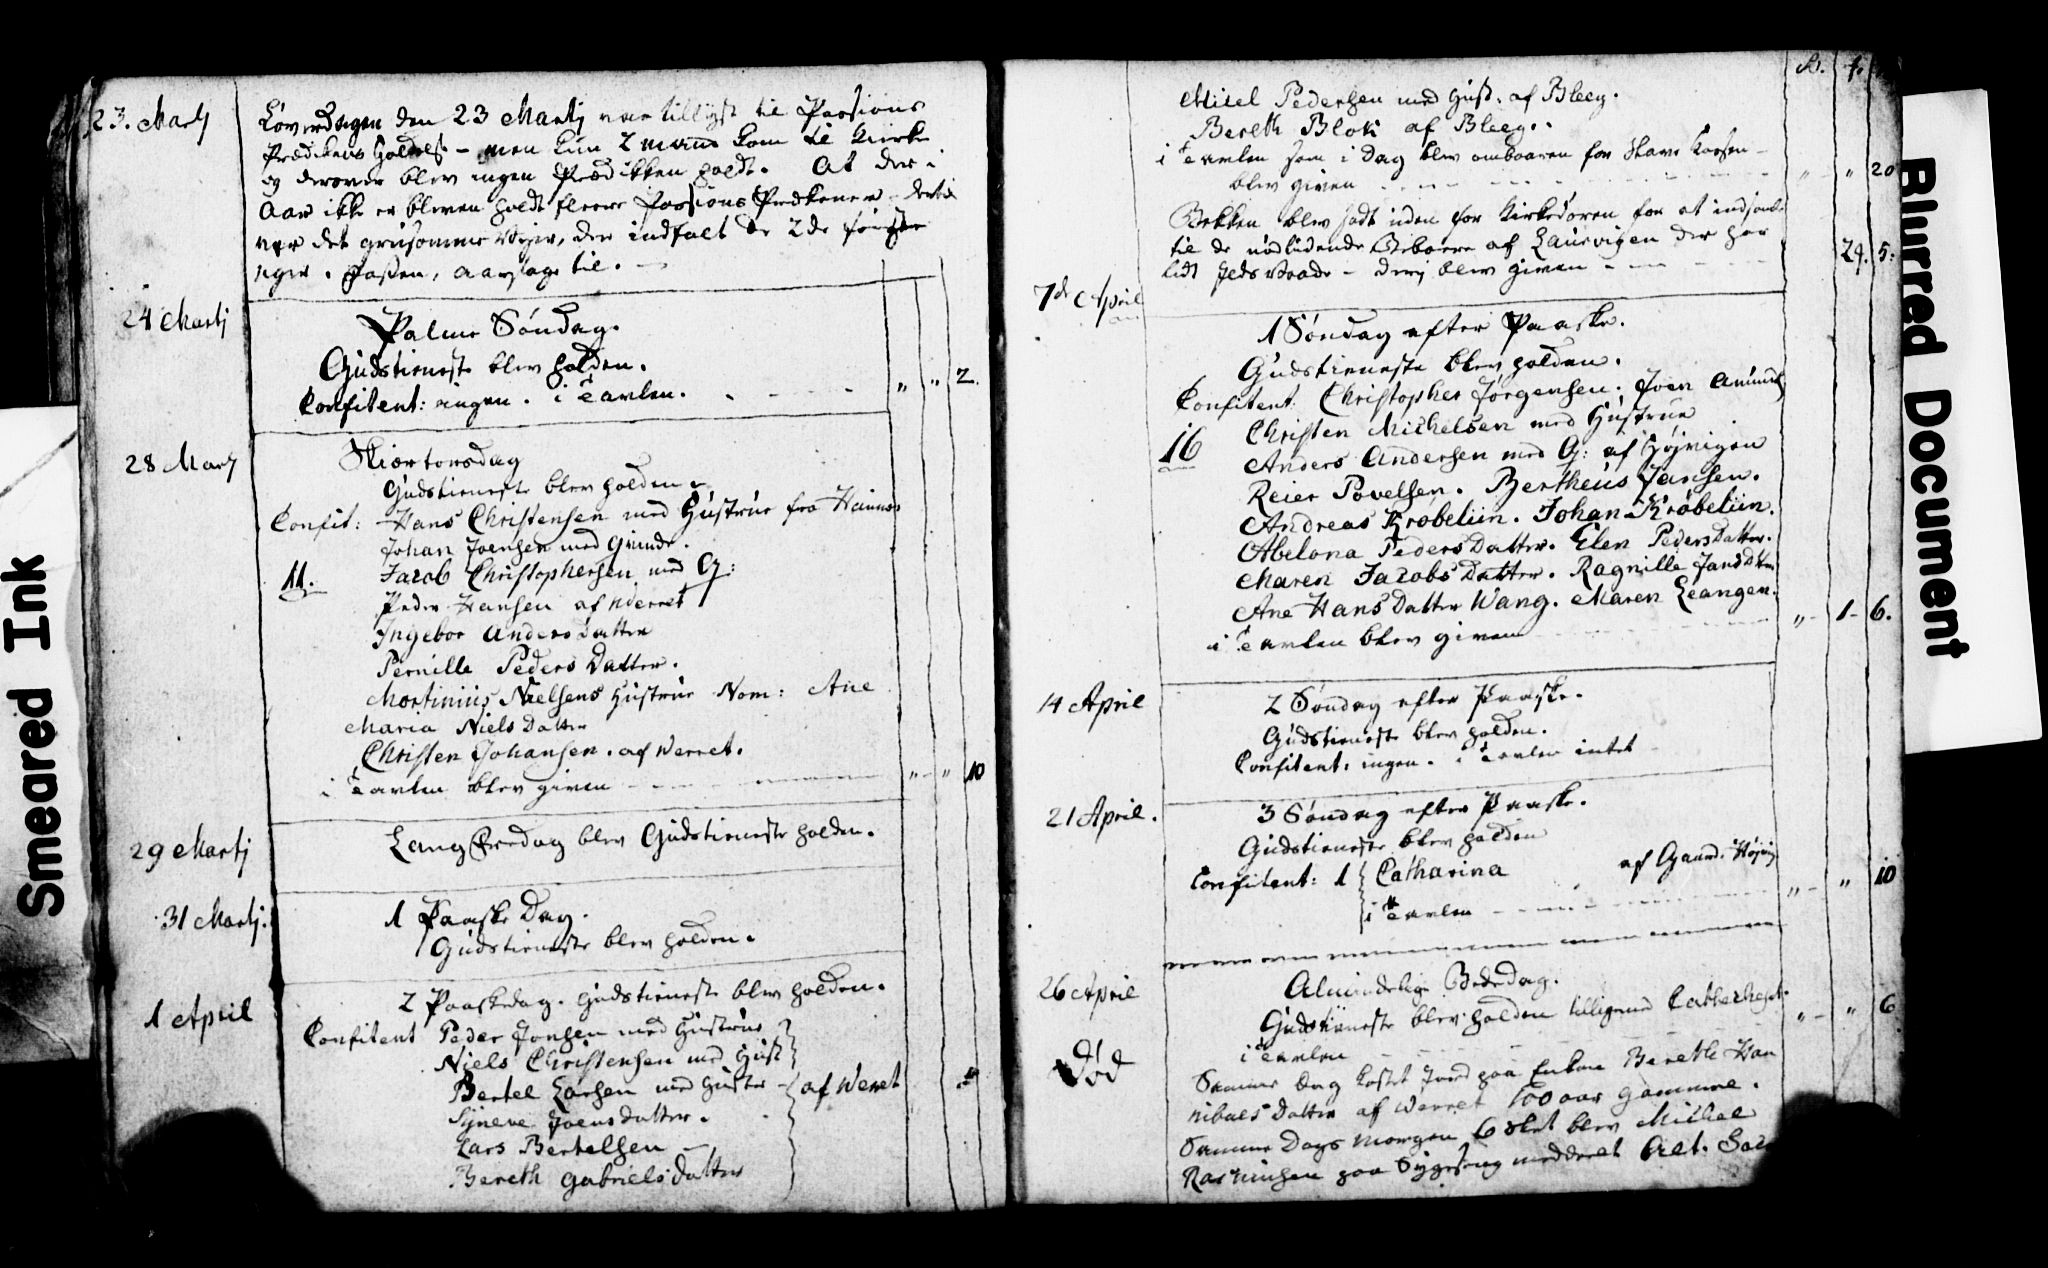 23. Martj
Løverdagen den 23 Martj var tillyst til Passions
Prædikens Holdelse - men kun 2 mand kom til Kirke
og derover blev ingen Prædikken holdt. At der i
Aar ikke er bleven holdt fleere Passions Prædkener - dertil
var det grusomme Vejer, der indfalt de 2de første
uger i Fasten, aarsage til.
24 Martj
Palme Søndag.
Gudstieneste blev holden.
Confitent: ingen. i Tavlen. " " 2.
28 Martj
Skiertorsdag
Gudstieneste blev holden.
Confit: Hans Christensen med Hustrue fra
Johan Joensen med Qvinde.
11. Jacob Christophersen med Q:
Peder Hansen af Werret
Ingebor Anders Datter
Pernille Peders Datter.
Mortinius Nielsens Hustrue Nom: Ane
Maria Niels Datter
Christen Johansen. af Werret.
i Tavlen blev given " " 10
29 Martj
Lang Fredag blev Gudstieneste holden.
31 Martj.
1 Paaske Dag.
Gudstieneste blev holden.
1 April
2 Paaskedag. Gudstieneste blev holden.
Confitent Peder Jonsen med Hustrue
Niels Christensen med Hust
Bertel Larsen med Hustr - af Weret
Syneve Joens datter.
Lars Bertelsen
Bereth Gabriels datter
Michel Pedersen med Hust. af Bleeg.
Bereth Blok af Bleeg.
i Tavlen som i Dag blev ombaaren for
blev given " " 20
Bekken blev sadt uden for Kirkedøren for at indsamle
til de nødlidende Beboere af Laurvigen der har
lidt Ildsvaade - derj blev given 24. 5.
7de April
1 Søndag efter Paaske.
Gudstieneste blev holden.
Confitent: Christopher Jørgensen. Joen Amunds
Christen Michelsen med Hustrue
16 Anders Andersen med Q: af Højvigen
Reier Povelsen. Bertheus Jansen.
Andreas Krøbeliin. Johan Krøbeliin.
Abelona Peders Datter. Elen Peders Datter.
Maren Jacobs Datter. Ragnille Jans Dttr
Ane Hans Datter Wang. Maren Leangen.
i Tavlen blev given " 1 - 6.
14 April
2 Søndag efter Paaske.
Gudstieneste blev holden.
Confitent: ingen. i Tavlen intet
21 April.
3 Søndag efter Paaske.
Gudstieneste blev holden
Confitent: 1 Catharina af Gaard. Højvig
i Tavlen " " 10
26 April
Almindelig Bededag.
Gudstieneste blev holden tilligemed Cathechisat.
i Tavlen " " 6
Død
Samme Dag kastet Jord paa Enken Bereth Han
nibals Datter af Werret 100 aar gammel.
Samme Dags Morgen 6 slet blev Michel
Rasmusen paa Sygeseng meddeelt Alt. Sac
Smeared Ink
Blurred Document